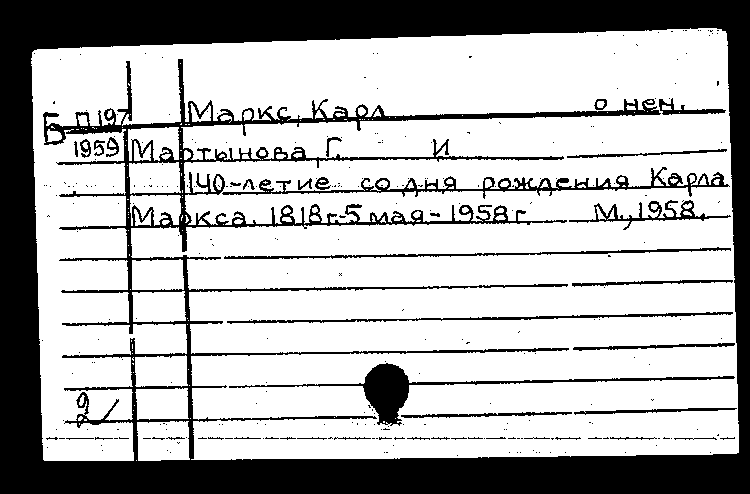 Б П197 Маркс, Карл о нем.
1959 Мартынова, Г. И
140-летие со дня рождения Карла
Маркса. 1818г.-5 мая-1958г. М., 1958.
2